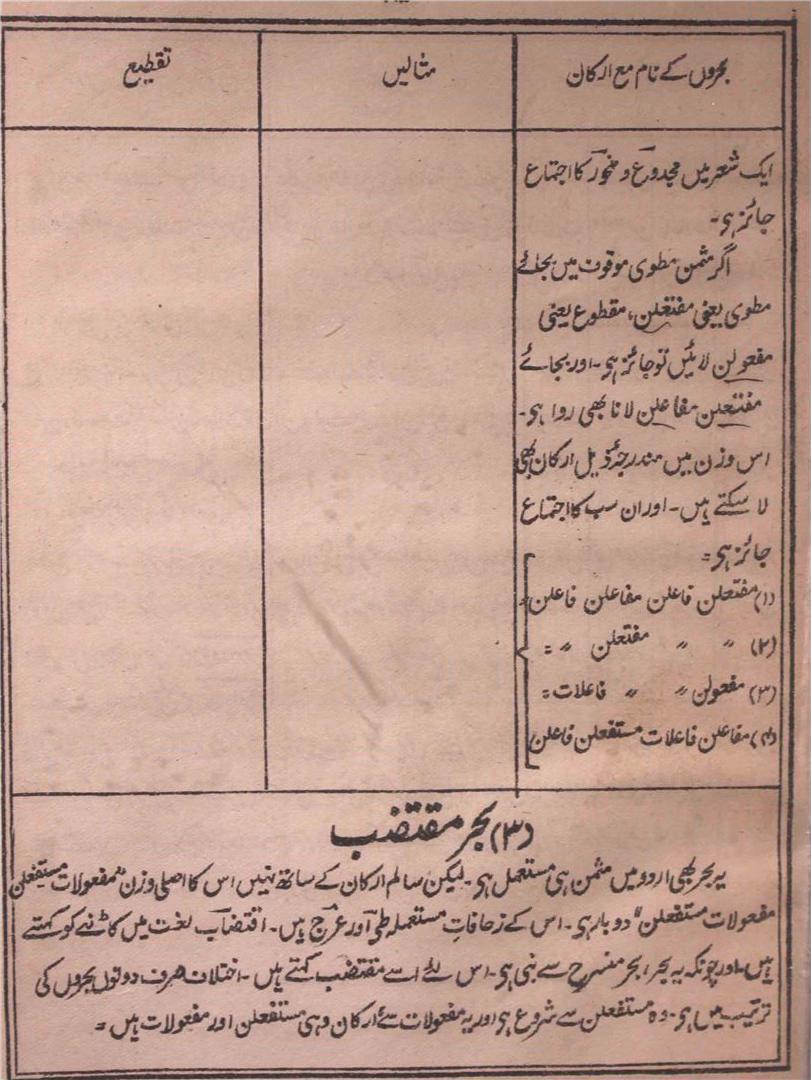 بحروں کے نام مع ارکان
مثالیں
تقطیع
ایک شعر میں مجدوع و منحور کا اجتماع
جائز ہی۔
اگر مثمن مطوی موقوف میں بجائے
مطوی یعنی مفتعلن، مقطوع یعنی
مفعولن لائیں تو جائز ہی۔ اور بجائے
مفتعلن مفاعلن لانا بھی روا ہی۔
اس وزن میں مندرجۂ ذیل ارکان بھی
لا سکتے ہیں۔ اور ان سب کا اجتماع
جائز ہی =
(۱) مفتعلن فاعلن مفاعلن فاعلن =
(۲) " " مفتعلن " =
(۳) مفعولن " " فاعلات =
(۴) مفاعلن فاعلات مستفعلن فاعلن
(۳) بحر مقتضب
یہ بحر بھی اردو میں مثمن ہی مستعمل ہی۔ لیکن سالم ارکان کے ساتھ نہیں اس کا اصلی وزن "مفعولات مستفعلن
مفعولات مستفعلن" دوبار ہی۔ اس کے زحافاتِ مستعملہ طی اور عرج ہیں۔ اقتضاب لغت میں کاٹنے کو کہتے
ہیں۔ اور چونکہ یہ بحر، بحر منسرح سے بنی ہی۔ اس لئے اسے مقتضب کہتے ہیں۔ اختلاف صرف دونوں بحروں کی
ترتیب میں ہی۔ وہ مستفعلن سے شروع ہی اور یہ مفعولات سے ارکان وہی مستفعلن اور مفعولات ہیں =